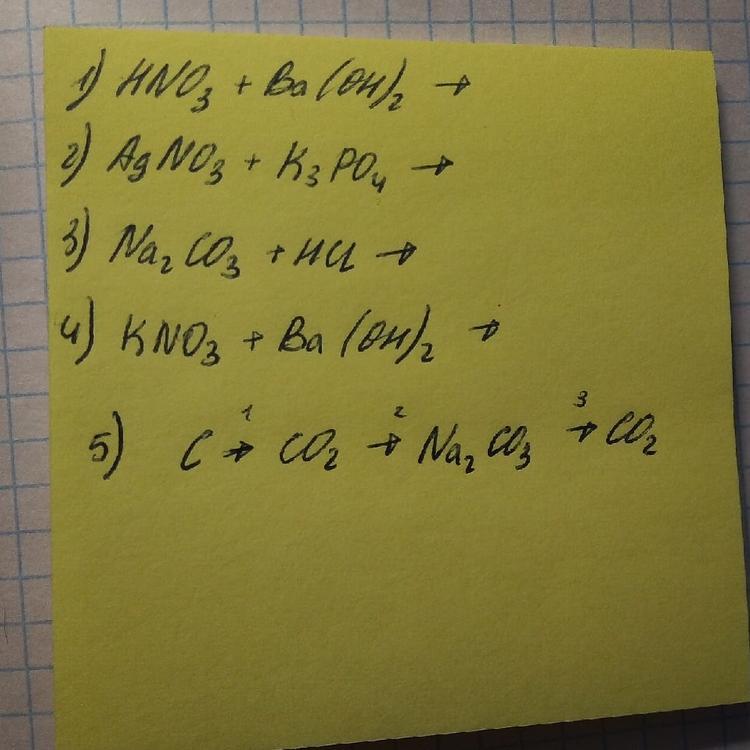 1) HNO₃ + Ba(OH)₂ →
2) AgNO₃ + K₃PO₄ →
3) Na₂CO₃ + HCl →
4) KNO₃ + Ba(OH)₂ →
5) C →¹ CO₂ →² Na₂CO₃ →³ CO₂